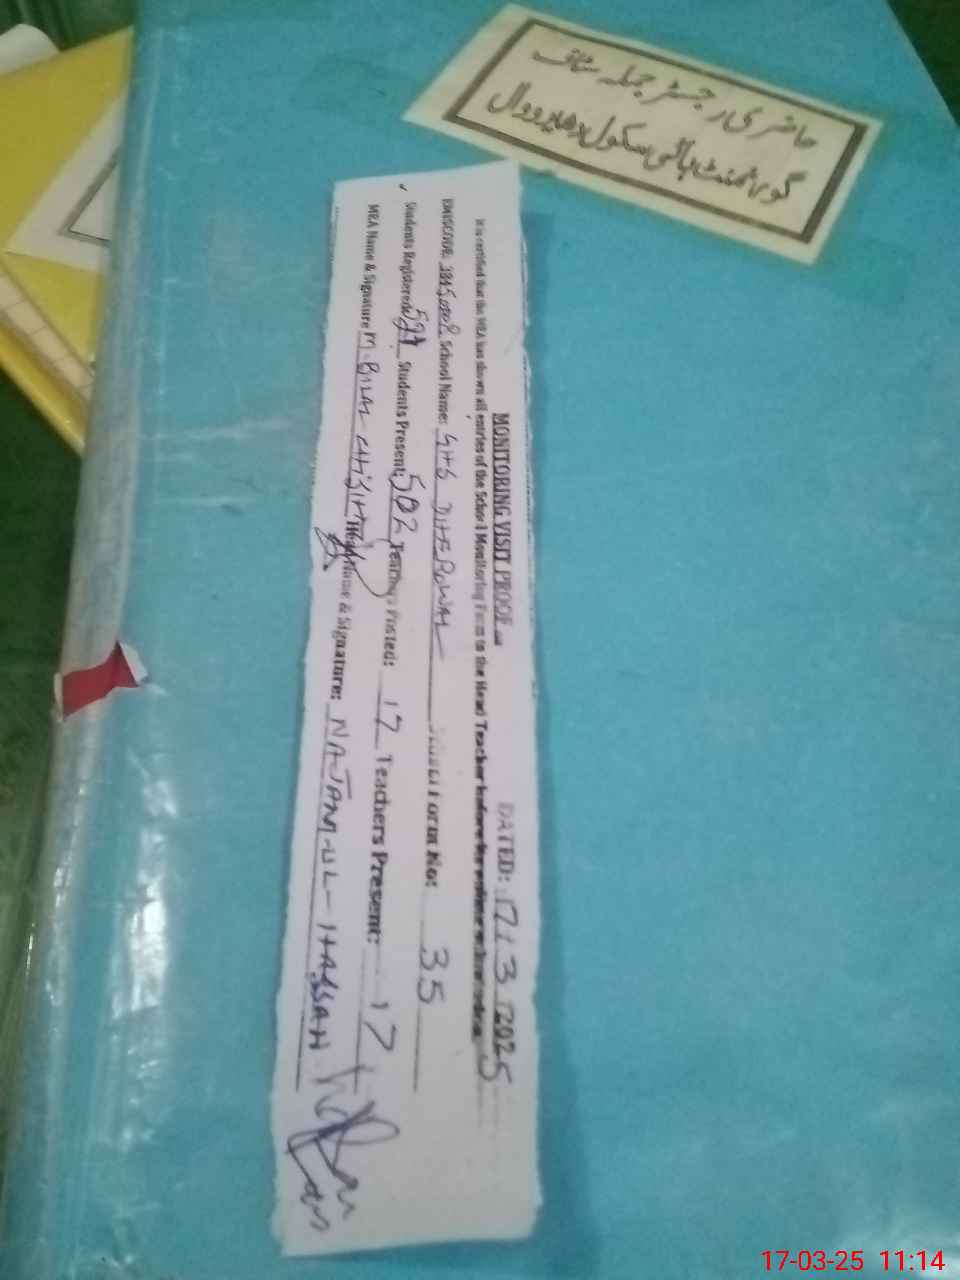 حاضری رجسٹر جملہ سٹاف
گورنمنٹ ہائی سکول
MONITORING VISIT PROOF
DATED: 17/3/2025
It is certified that the MEA has shown all entries of the School Monitoring Form to the Head Teacher before
EMISCODE: School Name: GHS DHEROWAL School Form No: 35
Students Registered: Students Present: 502 Teachers Posted: 17 Teachers Present: 17
MEA Name & Signature M. BILAL CHISHTI Head Name & Signature: NAJAM-UL-HASSAN
17-03-25 11:14